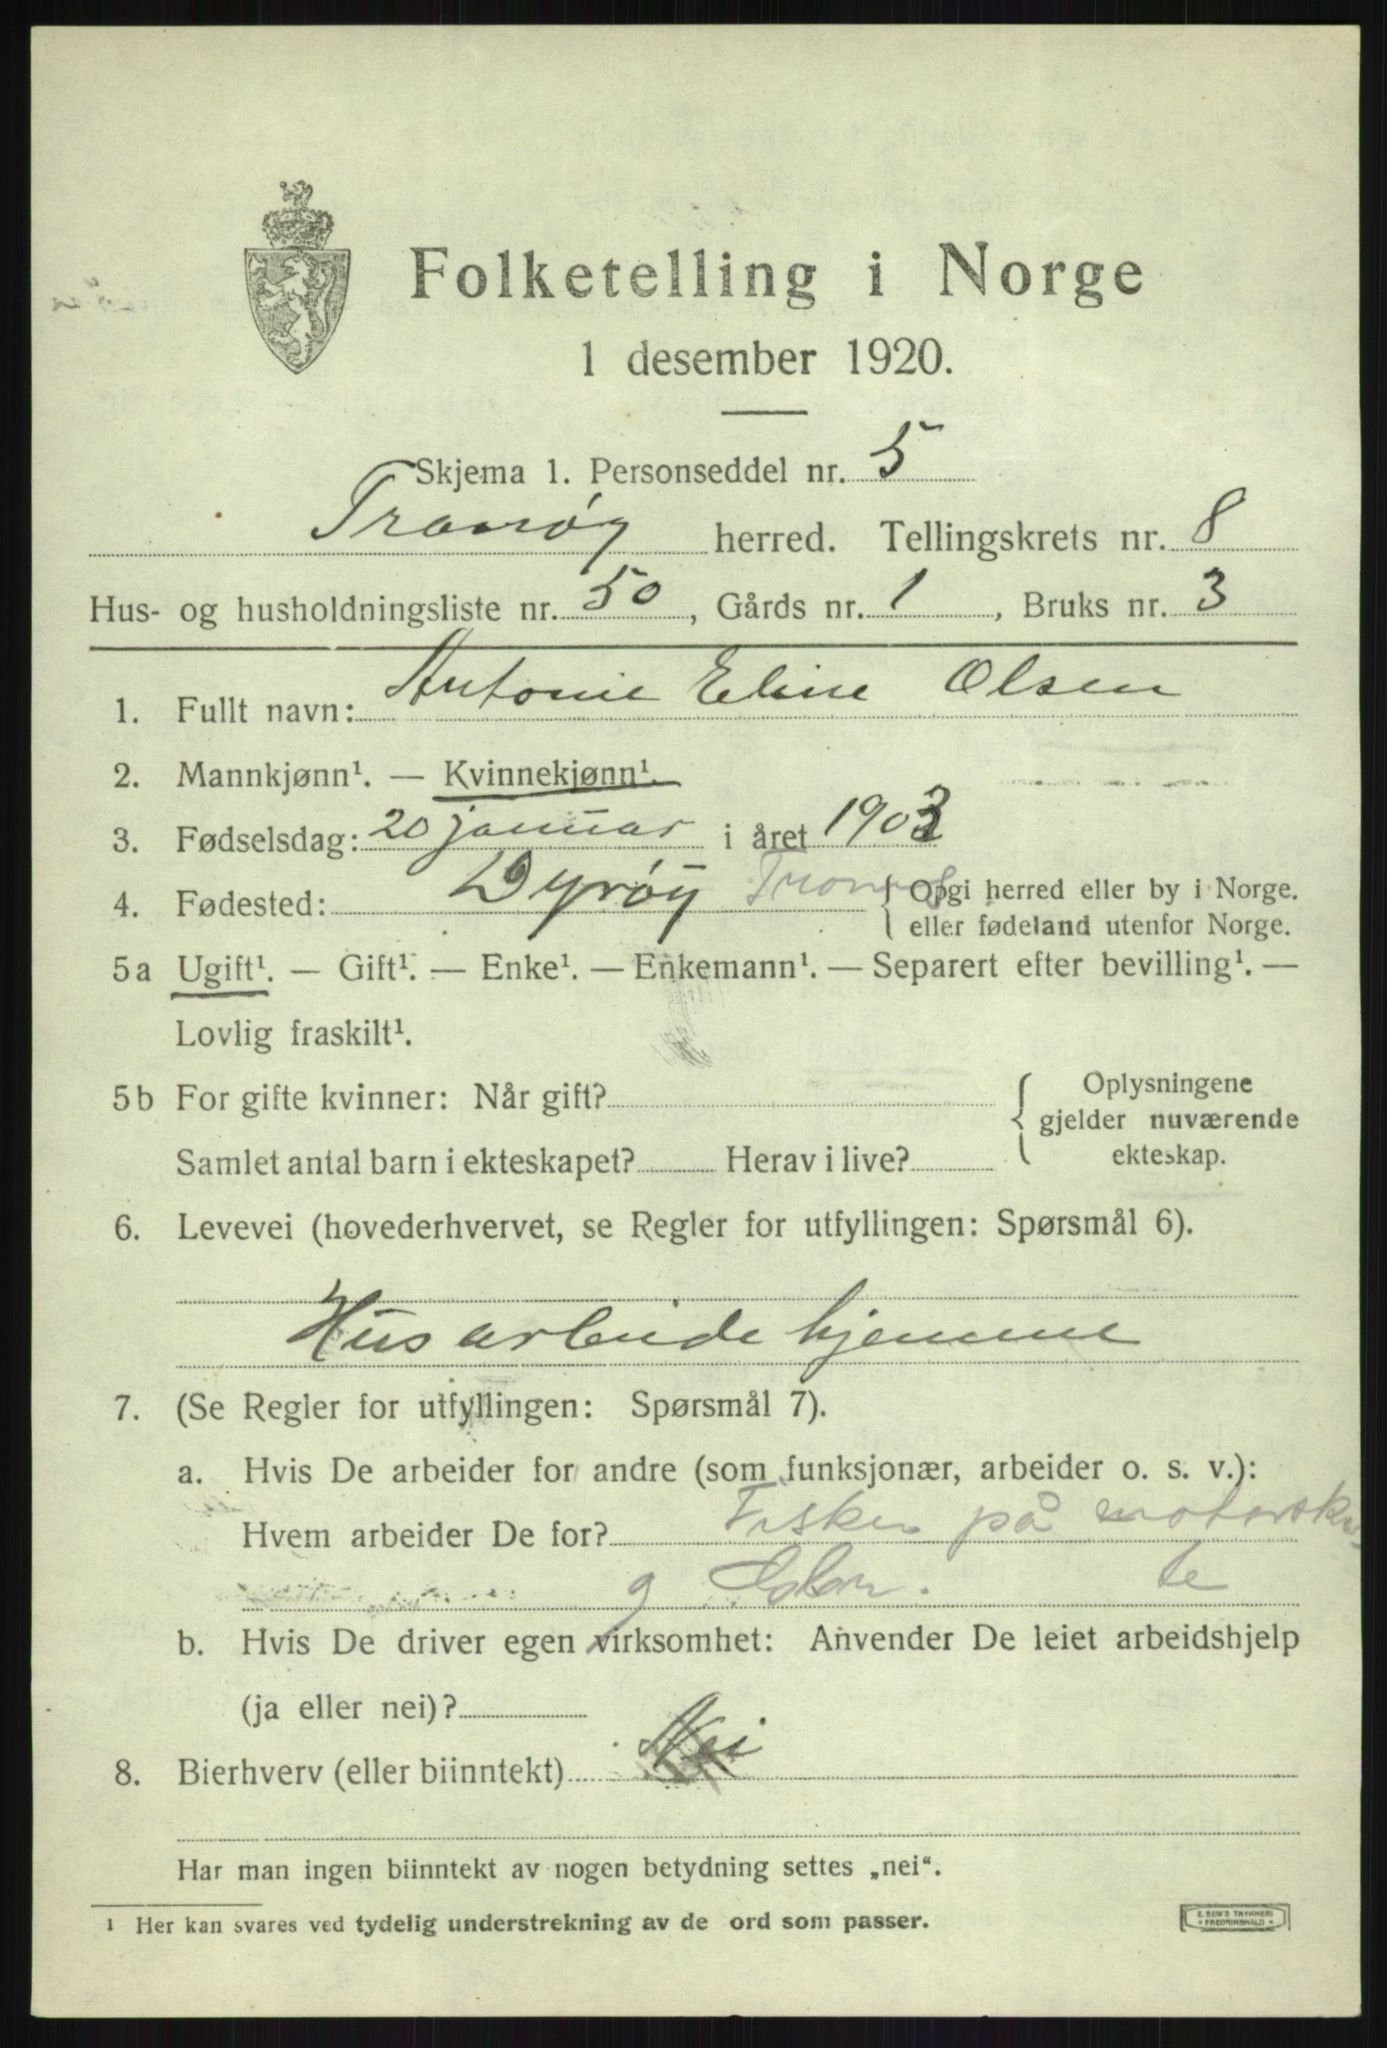 Folketelling i Norge
1 desember 1920.
Skjema 1. Personseddel nr. 5
Tranøy herred. Tellingskrets nr. 8
Hus- og husholdningsliste nr. 50, Gårds nr. 1, Bruks nr. 3
1. Fullt navn: Antonie Eline Olsen
2. Mannkjønn¹. — Kvinnekjønn¹.
3. Fødselsdag: 20 januar i året 1903
4. Fødested: Dyrøy Troms { Opgi herred eller by i Norge.
eller fødeland utenfor Norge.
5a Ugift¹. — Gift¹. — Enke¹. — Enkemann¹. — Separert efter bevilling¹. —
Lovlig fraskilt¹.
5b For gifte kvinner: Når gift?
Samlet antal barn i ekteskapet? Herav i live?
Oplysningene
gjelder nuværende
ekteskap.
6. Levevei (hovederhvervet, se Regler for utfyllingen: Spørsmål 6).
Husarbeide hjemme
7. (Se Regler for utfyllingen: Spørsmål 7).
a. Hvis De arbeider for andre (som funksjonær, arbeider o. s. v.):
Hvem arbeider De for? Fisker på motorskøi
te
b. Hvis De driver egen virksomhet: Anvender De leiet arbeidshjelp
(ja eller nei)?
8. Bierhverv (eller biinntekt) Nei
Har man ingen biinntekt av nogen betydning settes „nei“.
¹ Her kan svares ved tydelig understrekning av de ord som passer.
E. SEM'S TRYKKERI
FREDRIKSHALD